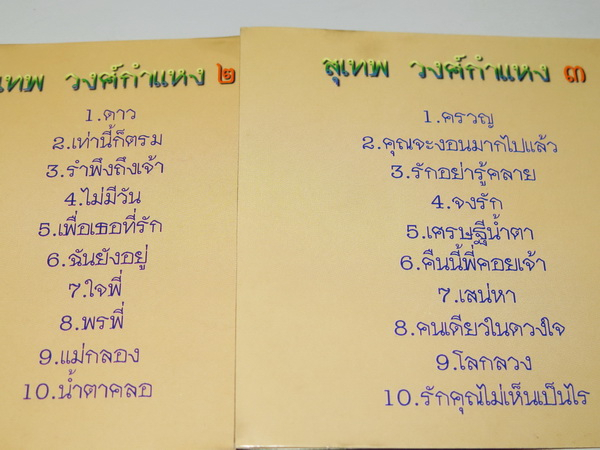 เทพ วงศ์กำแหง ๒
1.ดาว
2.เท่านี้ก็ตรม
3.รำพึงถึงเจ้า
4.ไม่มีวัน
5.เพื่อเธอที่รัก
6.ฉันยังอยู่
7.ใจพี่
8.พรพี่
9.แม่กลอง
10.น้ำตาคลอ
สุเทพ วงศ์กำแหง ๓
1.ครวญ
2.คุณจะงอนมากไปแล้ว
3.รักอย่ารู้คลาย
4.จงรัก
5.เศรษฐีน้ำตา
6.คืนนี้พี่คอยเจ้า
7.เสน่หา
8.คนเดียวในดวงใจ
9.โลกลวง
10.รักคุณไม่เห็นเป็นไร